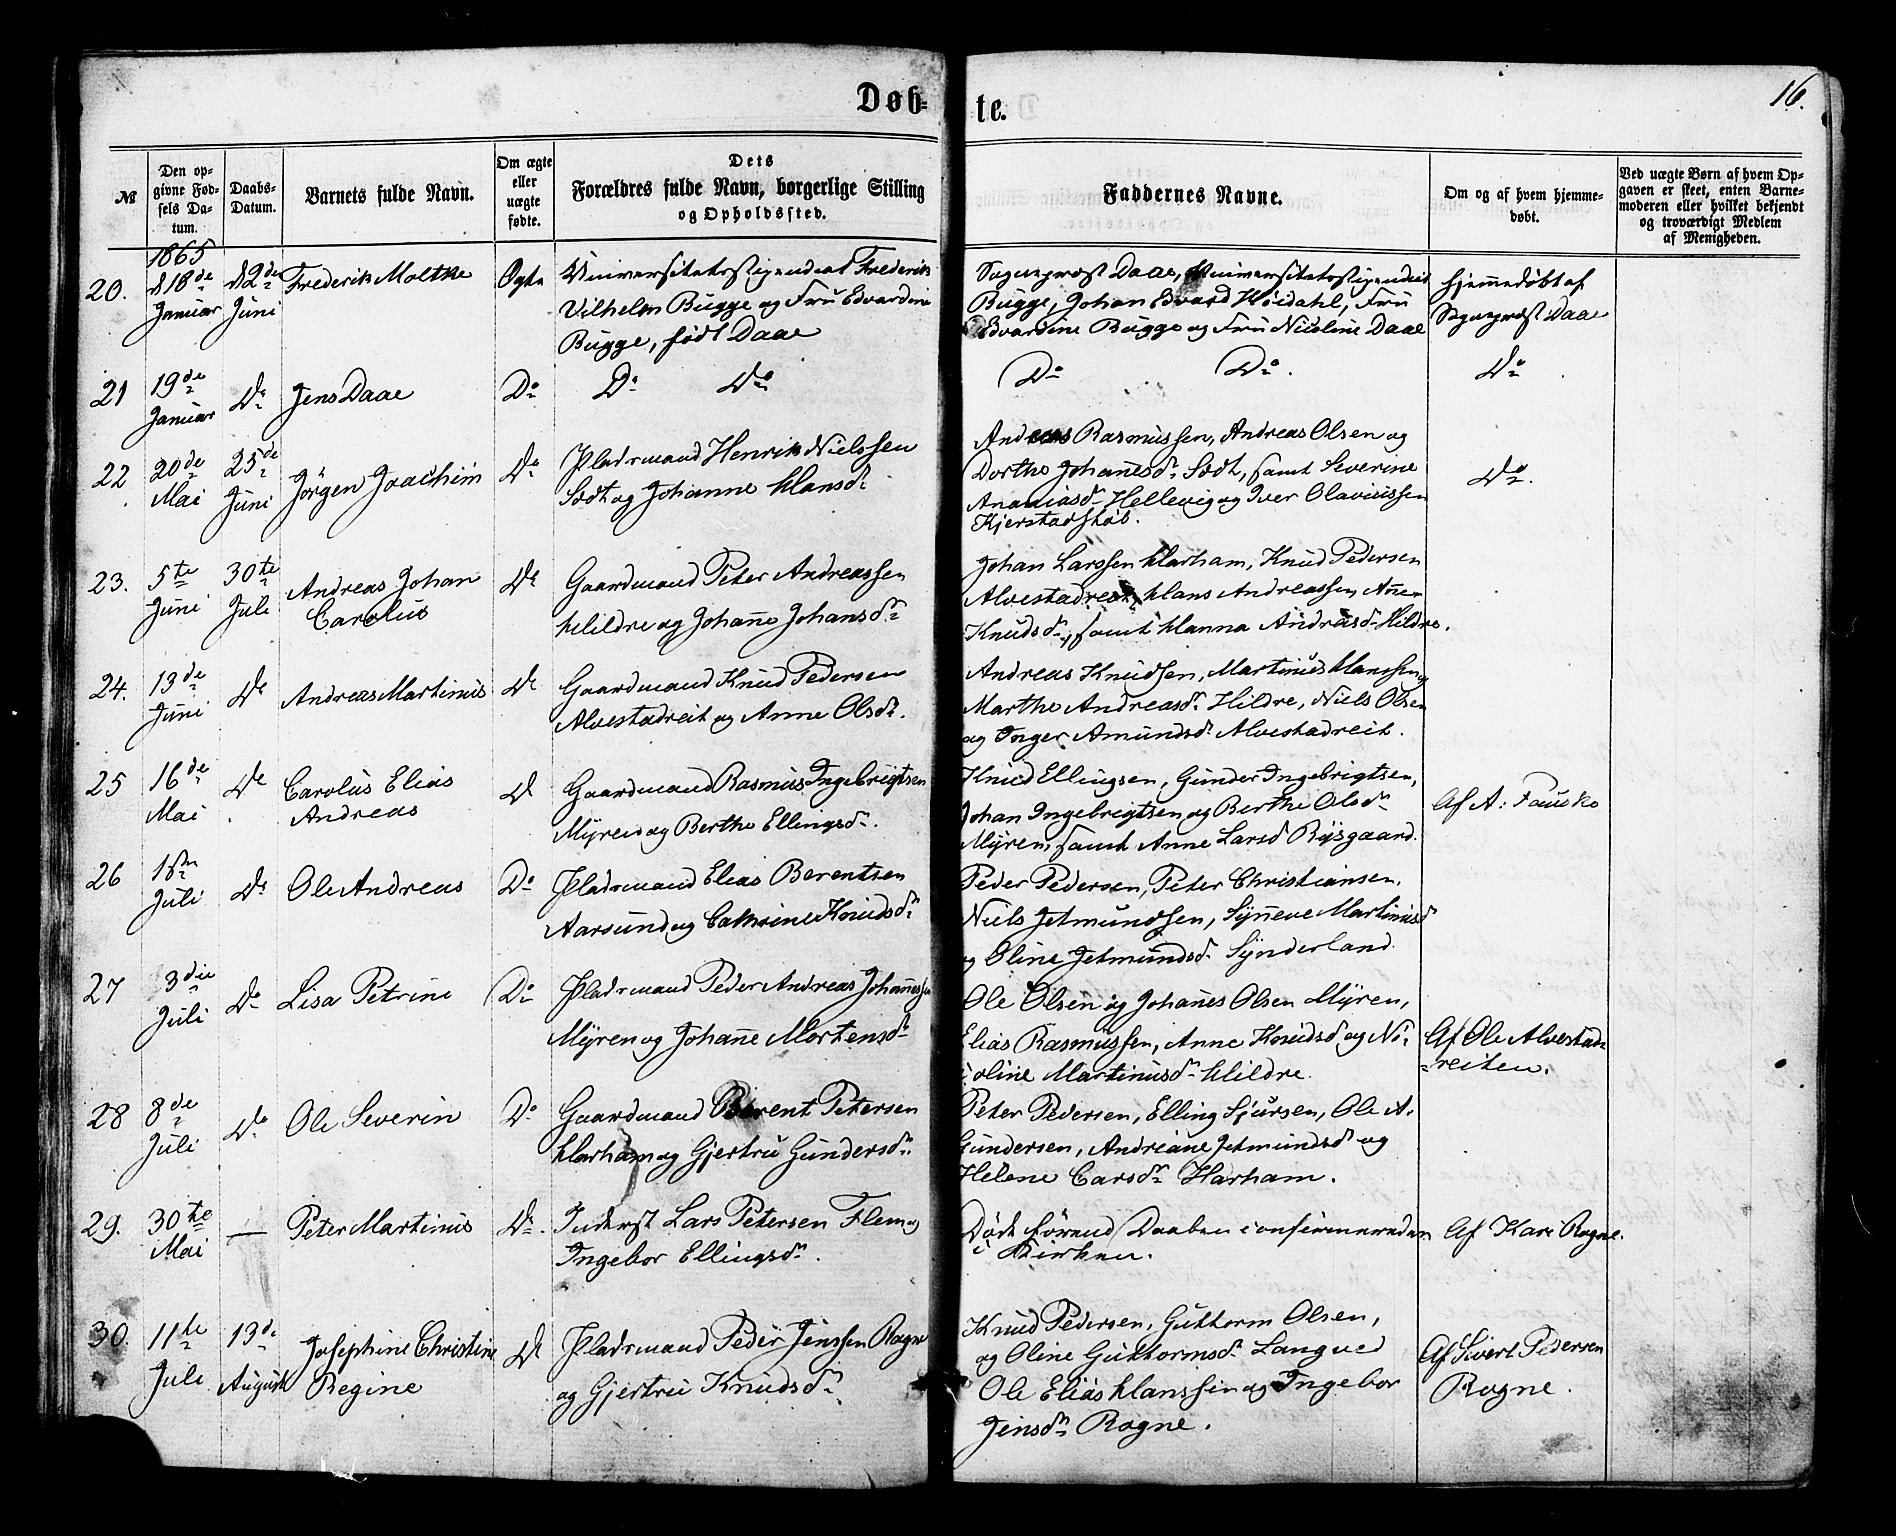 Døb-
te.
16.
№
Den op-
givne Fød-
sels Da-
tum.
Daabs-
Datum.
Barnets fulde Navn.
Om ægte
eller
uægte
fødte.
Dets
Forældres fulde Navn, borgerlige Stilling
og Opholdssted.
Faddernes Navne.
Om og af hvem hjemme-
døbt.
Ved uægte Børn af hvem Op-
gaven er skeet, enten Barne-
moderen eller hvilket bekjendt
og troværdigt Medlem
af Menigheden.
1865
20.
d 18de
Januar
d 2de
Juni
Frederik Moltke
Ægte
Universitetsstipendiat Frederik
Vilhelm Bugge og Fru Edvardine
Bugge, født Daae
Sognepræst Daae, Universitetsstipendiat
Bugge, Johan Edvard Höidahl, Fru
Edvardine Bugge og Fru Nicoline Daae
Hjemmedøbt af
Sognepræst Daae
21
19de
Januar
Do
Jens Daae
Do
Do Do
Do Do.
Do
22
20de
Mai
25de
Juni
Jörgen Joachim
Do
Pladsmand Henrik Nielssen
Södt og Johanne Hansd.
Andreas Rasmussen, Andreas Olsen og
Dorthe Johannesd. Södt, samt Severine
Ananiasd. Hellevig og Iver Olaviussen
Kjerstadstöb.
Do.
23.
5te
Juni
30te
Juli
Andreas Johan
Carolus
Do
Gaardmand Peter Andreassen
Hildre og Johanne Johansd.
Johan Larssen Harham, Knud Pedersen
Alvestadreit, Hans Andreassen, Anne
Knudsd., samt Hanna Andreasd. Hildre.
24.
13de
Juni
Do
Andreas Martinus
Do
Gaardmand Knud Pedersen
Alvestadreit og Anne Olsd.
Andreas Knudsen, Martinus Hanssen,
Marthe Andreasd. Hildre, Niels Olsen
og Inger Amundsd. Alvestadreit.
25
16de
Mai
Do
Carolus Elias
Andreas
Do
Gaardmand Rasmus Ingebrigtsen
Myren og Berthe Ellingsd.
Knud Ellingsen, Gunder Ingebrigtsen,
Johan Ingebrigtsen og Berthe Olsd.
Myren, samt Anne Larsd Rysgaard.
Af A: Fauske
26
1ste
Juli
Do
Ole Andreas
Do
Pladsmand Elias Berentsen
Aarsund og Cathrine Knudsd.
Peder Pedersen, Peter Christiansen,
Niels Jetmundsen, Synneve Martinusd
og Oline Jetmundsd. Synderland.
27
3die
Juli
Do
Lisa Petrine
Do
Pladsmand Peder Andreas Johannessen
Myren og Johanne Mortensd.
Ole Olsen og Johannes Olsen Myren,
Elias Rasmussen, Anne Knudsd og Ni-
coline Martinusd. Hildre.
Af Ole Alvestad-
reiten.
28
8de
Juli
Do
Ole Severin
Do
Gaardmand Berent Petersen
Harham og Gjertru Gundersd.
Peter Pedersen, Elling Sjursen, Ole A.
Gundersen, Andreane Jetmundsd og
Helene Larsd. Harham.
29.
30te
Mai
—
Peter Martinus
Do.
Inderst Lars Petersen Flem og
Ingebor Ellingsd.
Döde förend Daaben confirmeredes
i Kirken.
Af Kari Rogne.
30.
11te
Juli
13de
August
Josephine Christine
Regine
Do
Pladsmand Peder Jenssen Rogne
og Gjertru Knudsd.
Knud Pedersen, Guttorm Olsen,
og Oline Guttormsd. Langved
Ole Elias Hanssen og Ingebor
Jensd. Rogne.
Af Sivert Pedersen
Rogne.